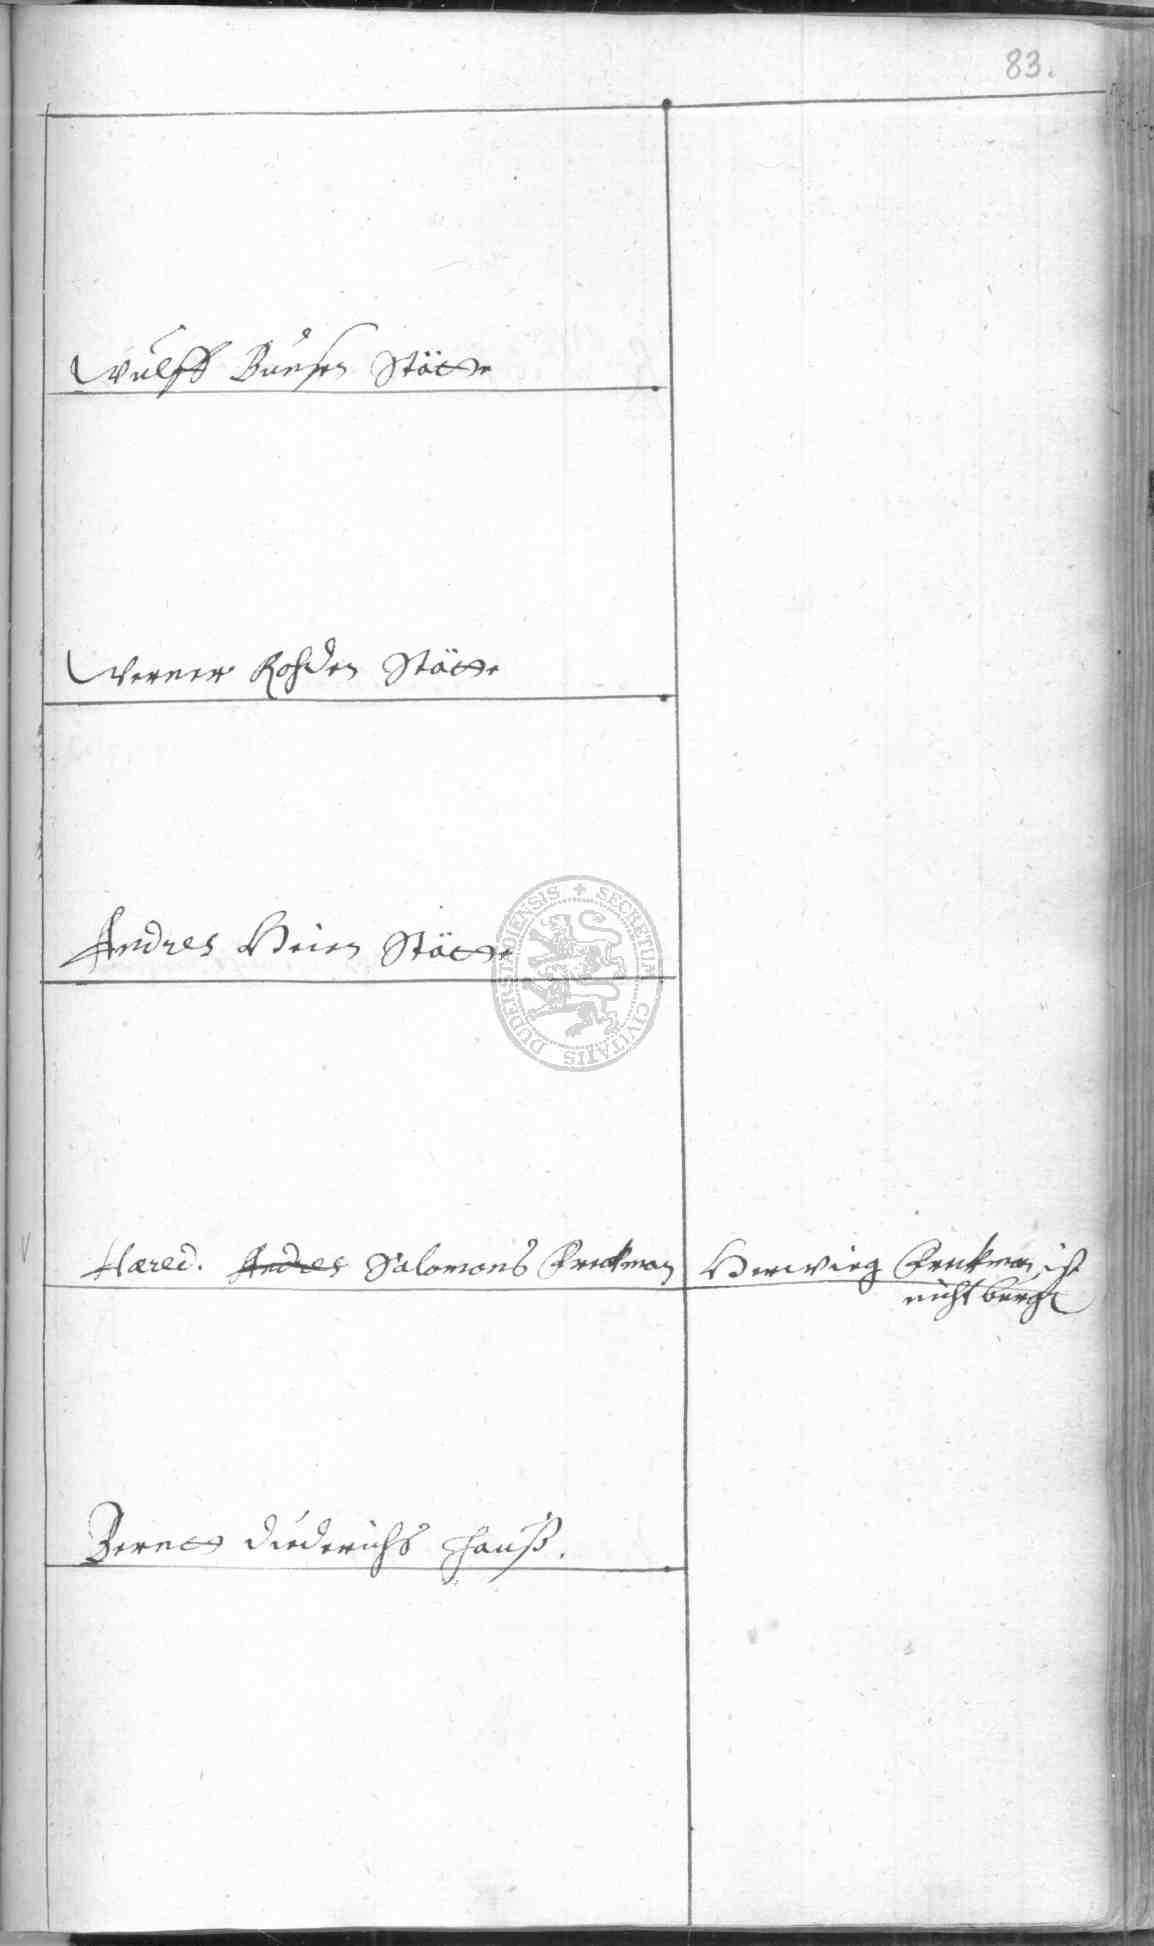 83.
Wulff Bunsen Stätte
Werner Rohden Stätte
Andres Heien Stätte
Haered. Andres Salomons Brickman
Herwieg Brickman ist
nicht burg
Berntt Diederichs Hauß.
DUDERSTADIENSIS + SECRETUM CIVITATIS